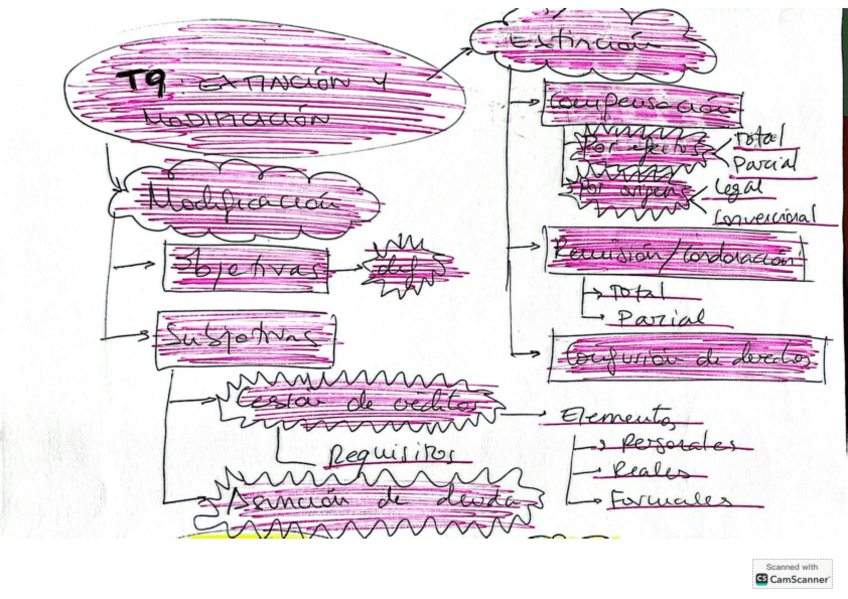 T9: EXTINCIÓN Y
MODIFICACIÓN
Extinción
Compensación
Por efectos
Total
Parcial
Por origen
Legal
Convencional
Remisión/Condonación
Total
Parcial
Confusión de derechos
Modificación
Objetivas
def
Subjetivas
Cesión de créditos
Requisitos
Elementos
Personales
Reales
Formales
Asunción de deuda
Scanned with
CS CamScanner